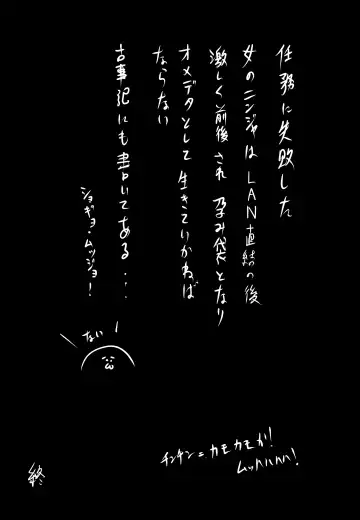 任務に失敗した
女のニンジャはLAN直結の後
激しく前後され孕み袋となり
オメデタとして生きていかねば
ならない
古事記にも書いてある…
ショギョ・ムッジョ!
ない!
チンチンニ、カモカモが!
ムッハハハ!
終